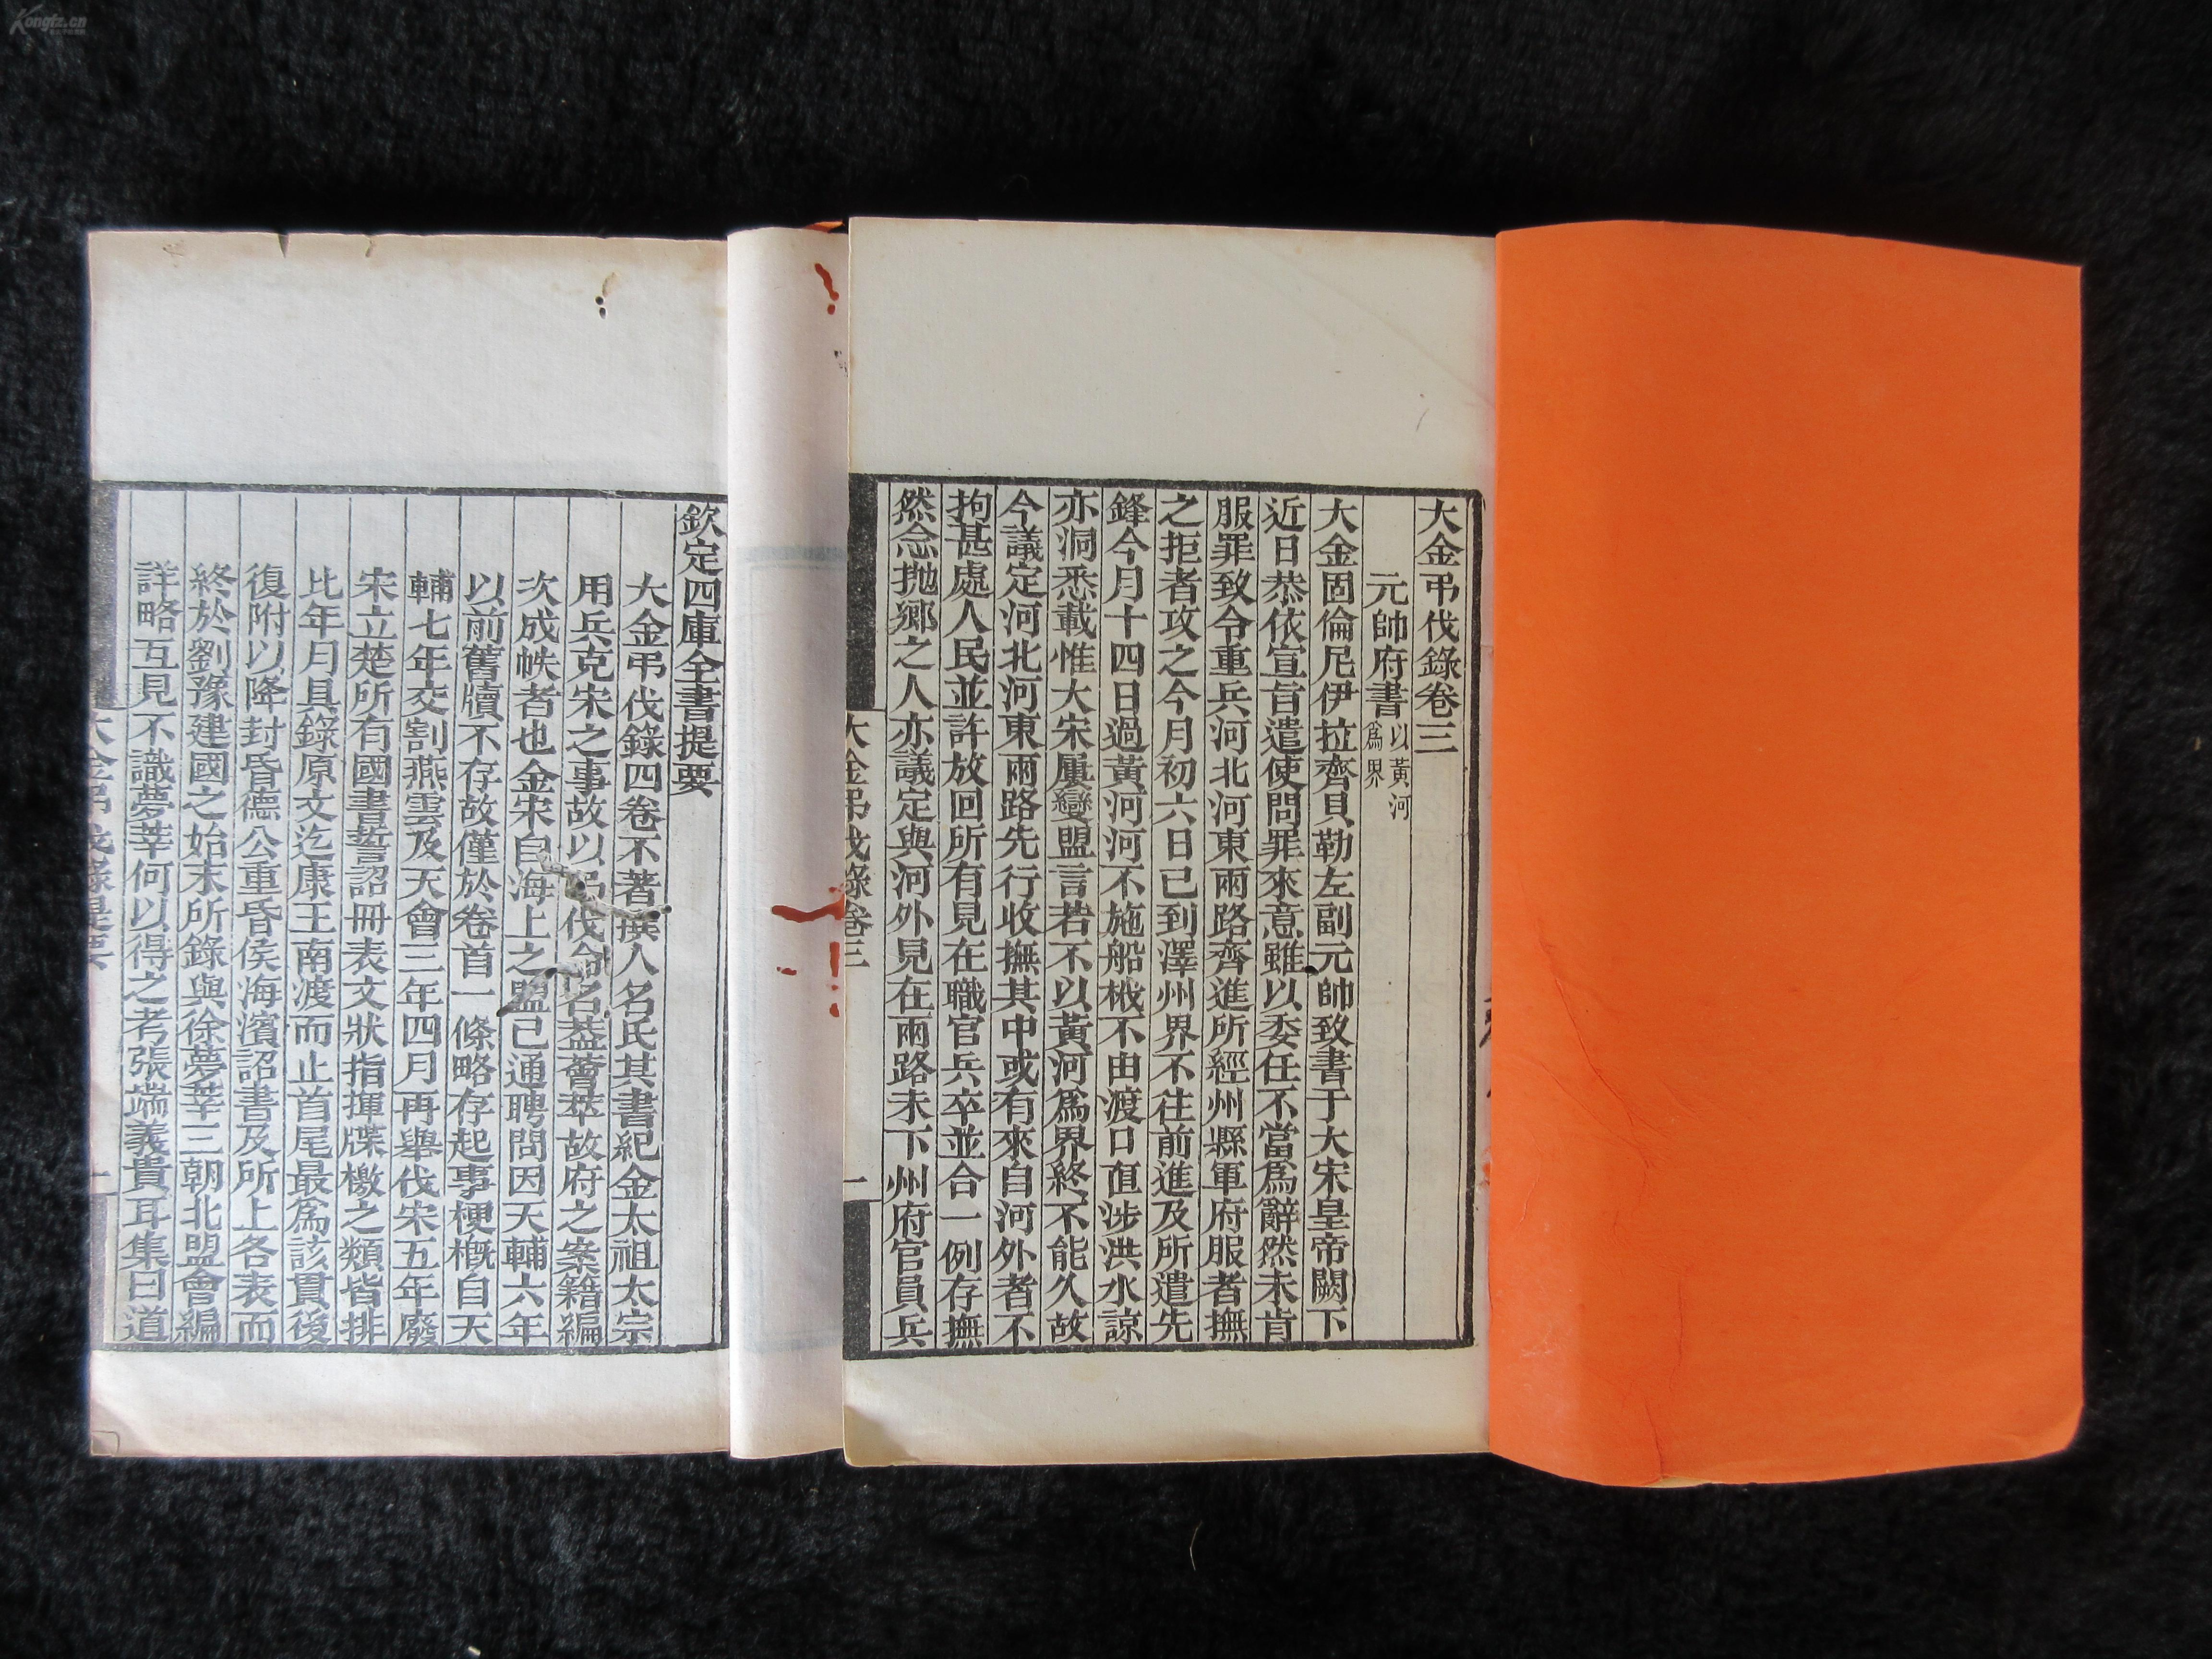 大金弔伐錄卷三
元帥府書以黃河爲界
大金固倫尼伊拉齊貝勒左副元帥致書于大宋皇帝闕下
近日恭依宣旨遣使問罪來意雖以委任不當爲辭然未肯
服罪致令重兵河北河東兩路齊進所經州縣軍府服者撫
之拒者攻之今月初六日已到澤州界不往前進及所遣先
鋒今月十四日過黃河河不施船栰不由渡口直涉洪水諒
亦洞悉載惟大宋屢變盟言若不以黃河爲界終不能久故
今議定河北河東兩路先行收撫其中或有來自河外者不
拘甚處人民並許放回所有見在職官兵卒並合一例存撫
然念拋鄉之人亦議定與河外見在兩路未下州府官員兵
大金弔伐錄卷三
一
欽定四庫全書提要
大金弔伐錄四卷不著撰人名氏其書紀金太祖太宗
用兵克宋之事故以弔伐命名蓋薈萃故府之案籍編
次成帙者也金宋自海上之盟已通聘問因天輔六年
以前舊牘不存故僅於卷首一條略存起事梗槪自天
輔七年交割燕雲及天會三年四月再舉伐宋五年廢
宋立楚所有國書誓詔冊表文狀指揮牒檄之類皆排
比年月具錄原文迄康王南渡而止首尾最爲該貫後
復附以降封昏德公重昏侯海濱詔書及所上各表而
終於劉豫建國之始末所錄與徐夢莘三朝北盟會編
詳略互見不識夢莘何以得之考張端義貴耳集曰道
大金弔伐錄提要
一
Kongfz.cn